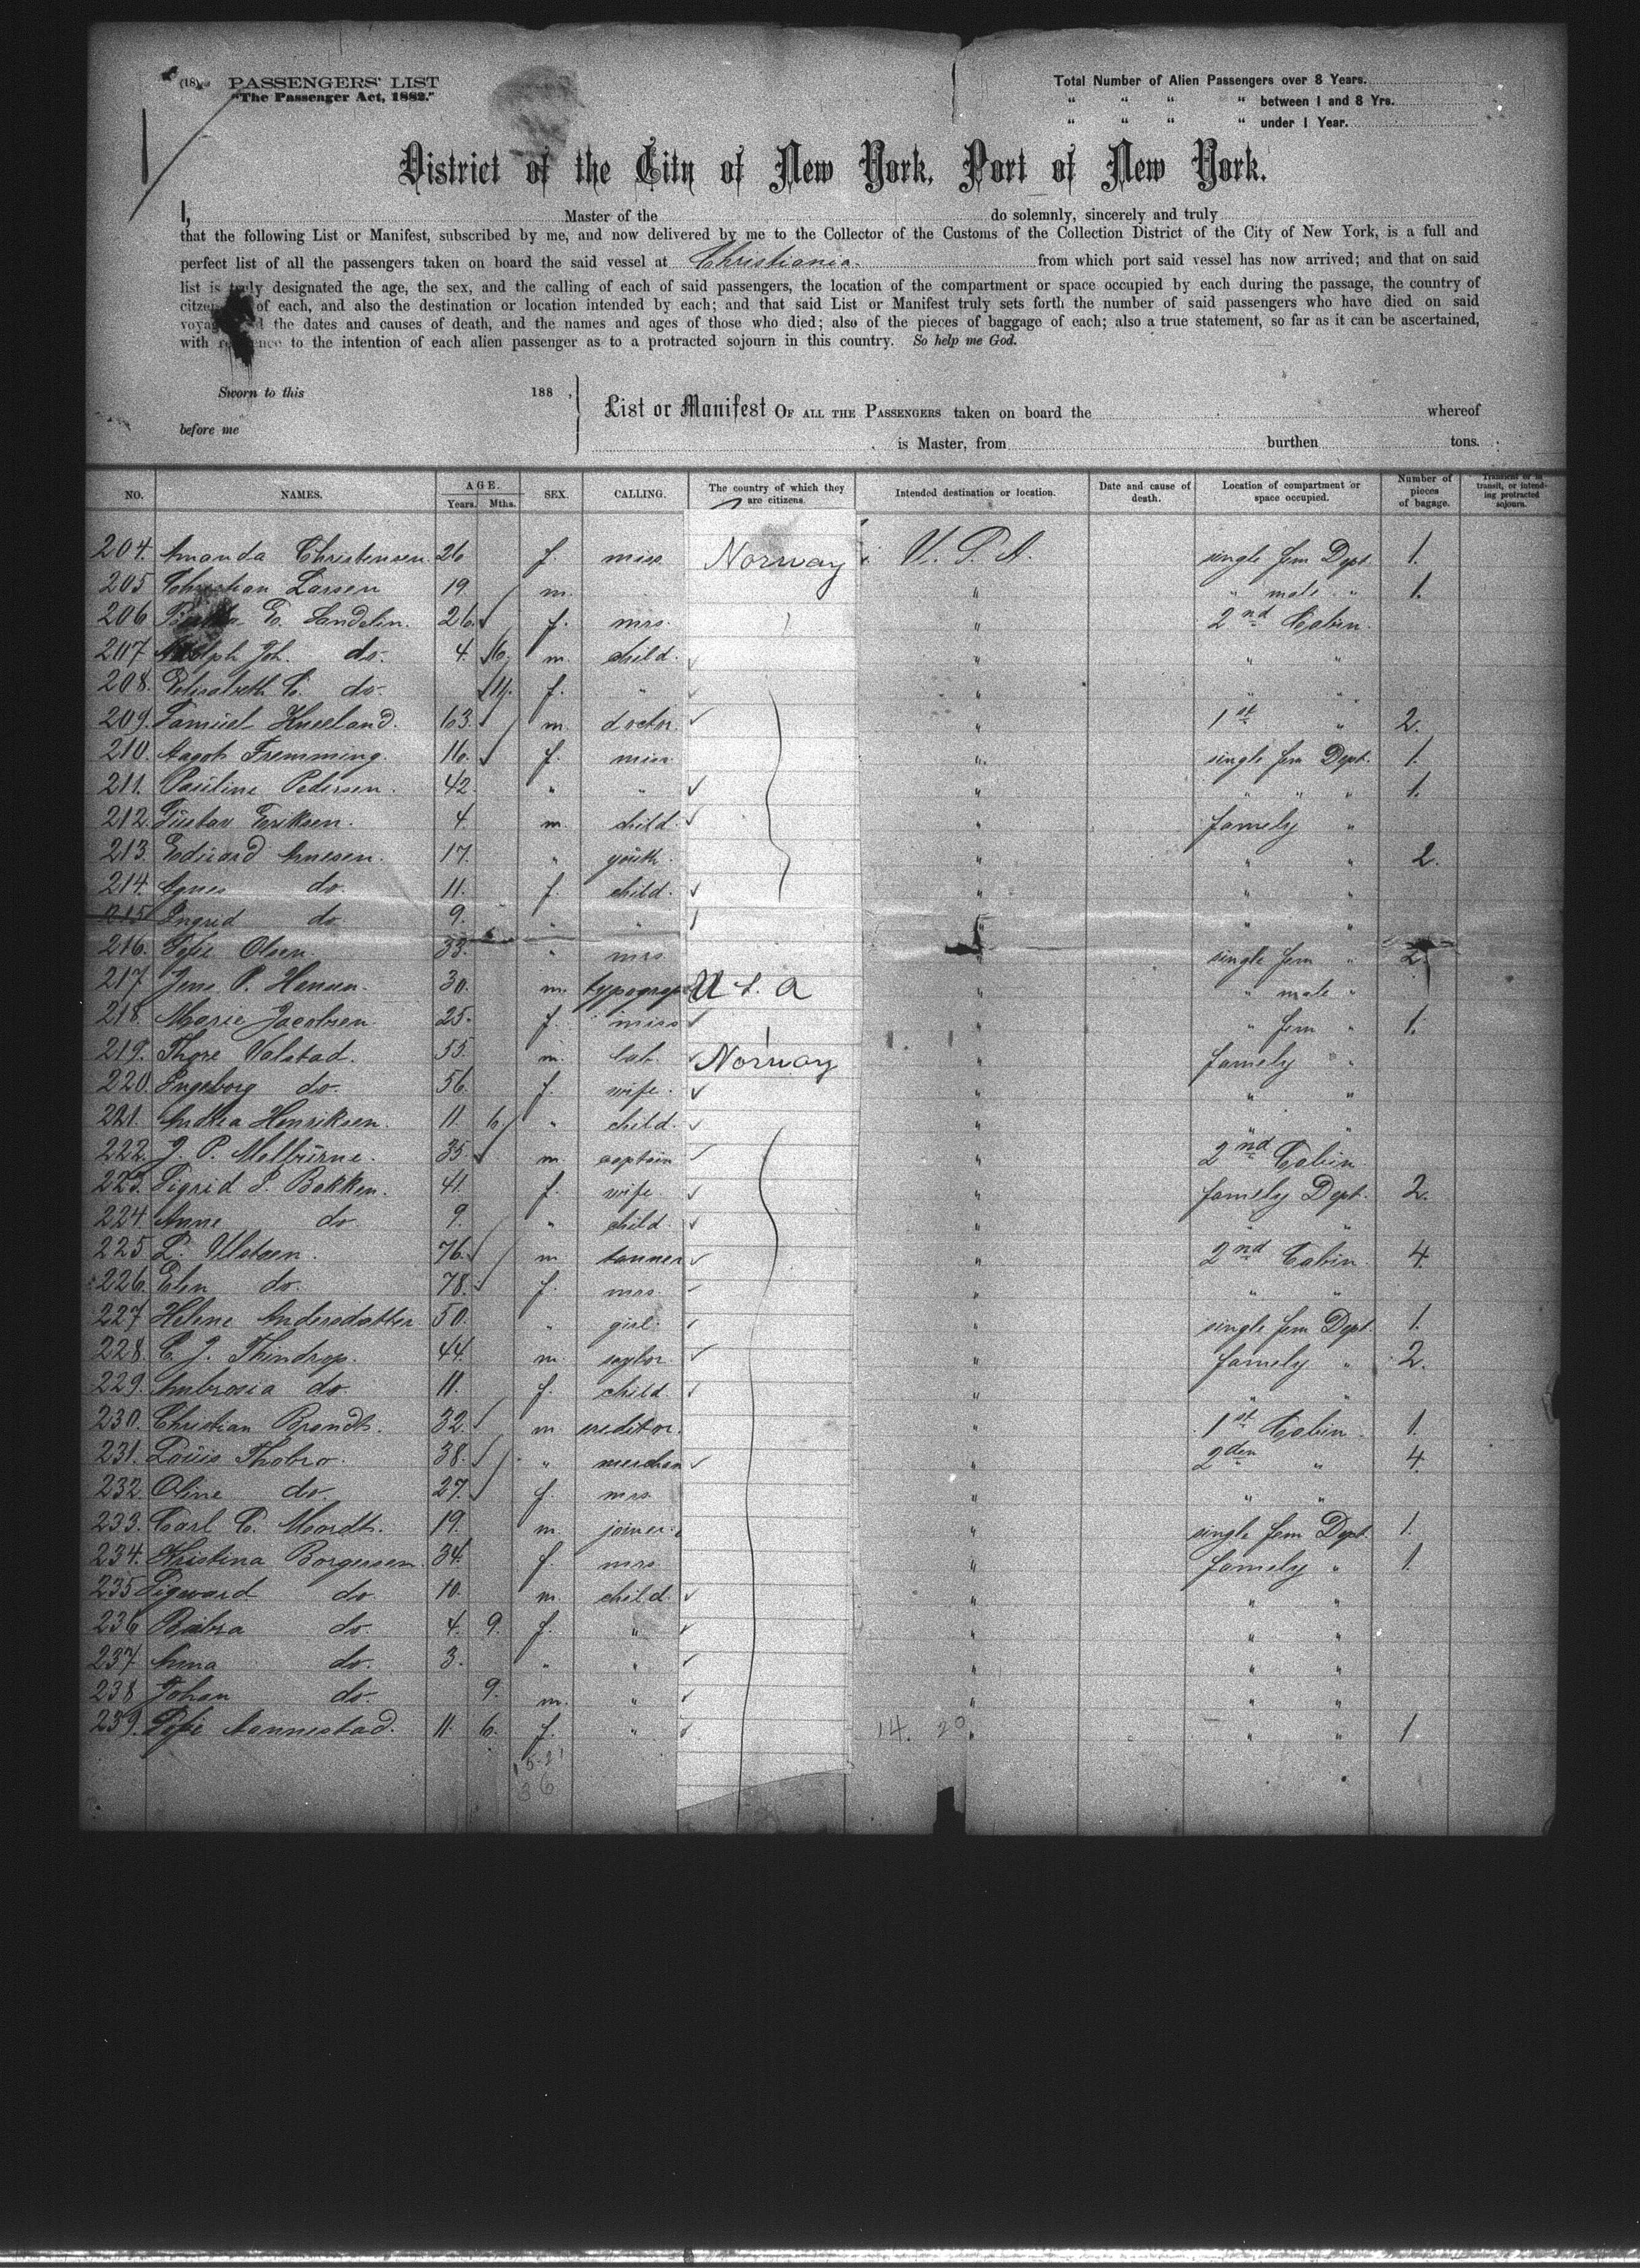 (18) PASSENGERS' LIST
"The Passenger Act, 1882."
Total Number of Alien Passengers over 8 Years.
" " " " between 1 and 8 Yrs.
" " " " under 1 Year.
District of the City of New York, Port of New York.
I, Master of the do solemnly, sincerely and truly
that the following List or Manifest, subscribed by me, and now delivered by me to the Collector of the Customs of the Collection District of the City of New York, is a full and
perfect list of all the passengers taken on board the said vessel at Christiania from which port said vessel has now arrived; and that on said
list is truly designated the age, the sex, and the calling of each of said passengers, the location of the compartment or space occupied by each during the passage, the country of
of each, and also the destination or location intended by each; and that said List or Manifest truly sets forth the number of said passengers who have died on said
the dates and causes of death, and the names and ages of those who died; also of the pieces of baggage of each; also a true statement, so far as it can be ascertained,
with to the intention of each alien passenger as to a protracted sojourn in this country. So help me God.
Sworn to this 188 ,
before me
List or Manifest OF ALL THE PASSENGERS taken on board the whereof
is Master, from burthen tons.
NO. NAMES. AGE. Years. Mths. SEX. CALLING. The country of which they are citizens. Intended destination or location. Date and cause of death. Location of compartment or space occupied. Number of pieces of bagage. transit, or intending protracted sojourn.
204. Amanda Christensen. 26 f. miss Norway U. S. A. single fem Dept. 1.
205 Christian Larsen 19. m. " " male " 1.
206 E. Sandelin. 26. f. mrs. " 2nd Cabin.
207 Joh. do. 4. 6. m. child. " " "
208. Elisabeth C. do. 11. f. " " " "
209. Samuel Kneeland. 63. m. doctor. " 1st " 2.
210. Aagot Fremming. 16. f. miss " single fem Dept. 1.
211. Pauline Pedersen. 42. " " " " " " 1.
212. Gustav Eriksen. 4. m. child. " famely "
213. Edward Arnesen. 17. " youth. " " " 2.
214. Agnes do. 11. f. child. " " "
215 Ingrid do. 9. " " " " "
216. Olsen. 33. " mrs. " single fem " 2.
217 Jens P. Hansen. 30. m. typograp U. S. A " " male "
218. Marie Jacobsen. 25. f. miss " " fem " 1.
219. Thore Valstad. 55. m. lab. Norway " famely "
220. Ingeborg do. 56. f. wife. " " "
221. Andrea Henriksen. 11. 6. " child. " " "
222. J. P. Melbürne. 35. m. captain " 2nd Cabin
223. Sigrid S. Bakken. 41. f. wife. " famely Dept. 2.
224. Anne do. 9. " child. " " "
225. L. Ulstøen. 76. m. tanner " 2nd Cabin. 4.
226. Elen do. 78. f. mrs. " " "
227 Helene Andersdatter 50. " girl. " single fem Dept. 1.
228. C. J. Thindrop. 44. m. saylor. " famely " 2.
229. Ambrosia do. 11. f. child. " " "
230. Christian Brandt. 32. m. creditor. " 1st Cabin 1.
231. Louis Thobro. 38. " merchan " 2den " 4.
232. Oline do. 27. f. mrs. " " "
233. Carl C. Mordt. 19. m. joiner. " single fem Dept. 1.
234. Kristina Borgersen. 34. f. mrs. " famely " 1.
235 Sigward do 10. m. child. " " "
236 do 4. 9. f. " " " "
237 Anna do. 3. " " " " "
238 Johan do. 9. m. " " " "
239. Aannestad. 11. 6. f. " 14. 20 " " " 1
15. 21
36